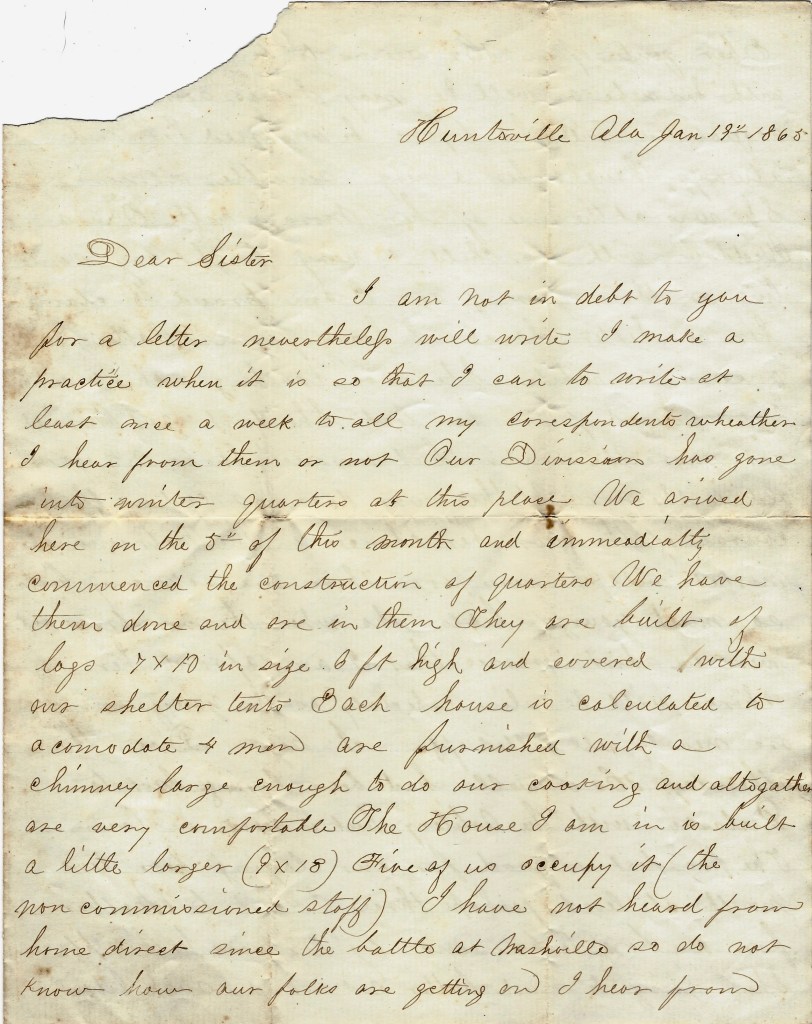 Huntsville Ala Jan 19" 1865
Dear Sister
I am not in debt to you
for a letter nevertheless will write I make a
practice when it is so that I can to write at
least once a week to all my corespondents wheather
I hear from them or not Our Division has gone
into winter quarters at this place We arived
here on the 5" of this month and immeadiatly
commenced the construction of quarters We have
them done and are in them They are built of
logs 7 x 10 in size 6 ft high and covered with
our shelter tents Each house is calculated to
acomodate 4 men are furnished with a
chimney large enough to do our cooking and altogather
are very comfortable The House I am in is built
a little larger (9 x 18) Five of us occupy it (the
non commissioned staff) I have not heard from
home direct since the battle at Nashville so do not
know how our folks are getting on I hear from